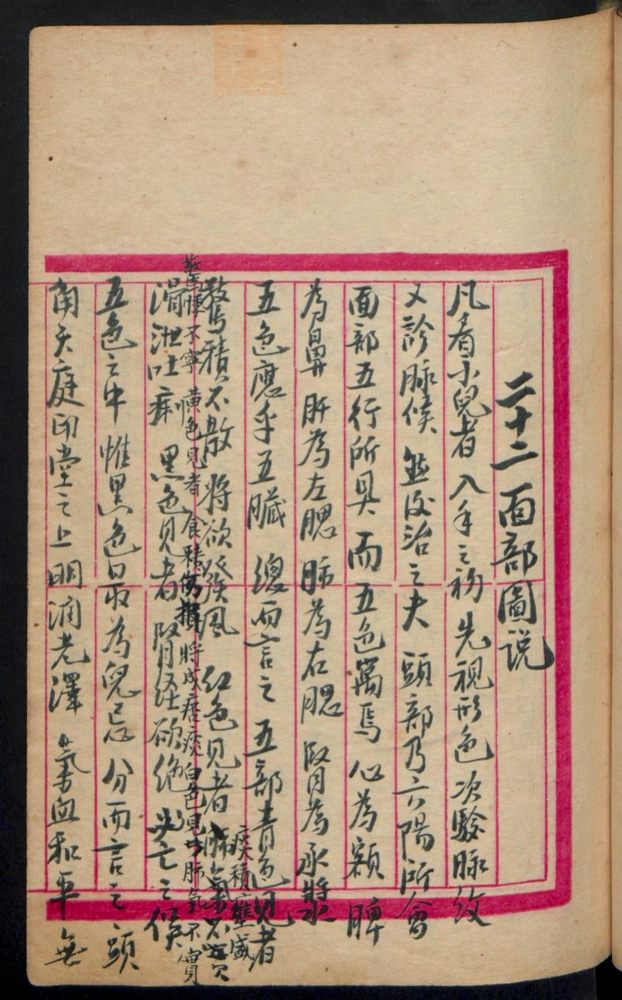 二十二面部圖説
凡看小兒者 入手之初 先視形色 次驗脉紋
又診脉候 然後治之夫 頭部乃六陽所會
面部五行所具 而五色寓焉 心為額 脾
為鼻 肝為左腮 肺為右腮 腎為承漿
五色應乎五臟 總而言之 五部青色見者
驚積不散 將欲發風 紅色見者 痰積壅盛
驚悸不寧 黃色見者 食積傷 將成疳痰 白色見 肺氣不實
滑泄吐痢 黑色見者 腎經欲絶 之候
五色之中 惟黑色最為兒忌 分而言之 頭
角天庭印堂之上 明润光澤 氣血和平 無